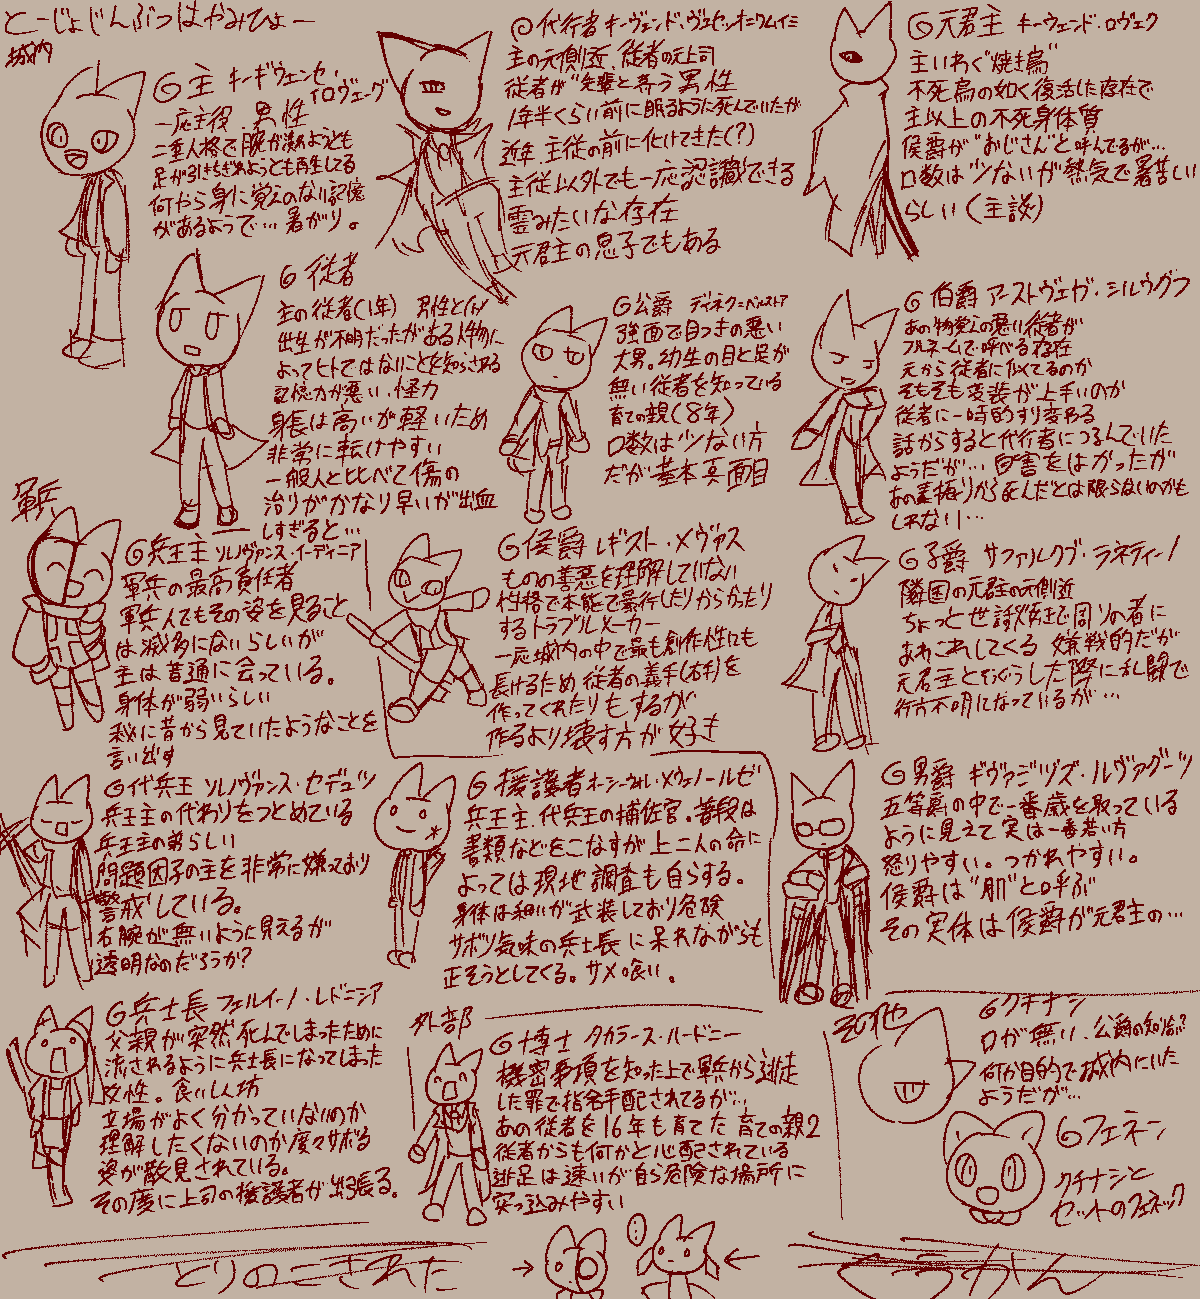 とーじょじんぶつはやみひょー
城内
主 キーギウェンセ・ロヴェーグ
一応主役 男性
二重人格で腕が潰れようとも
足が引きちぎれようとも再生してる
何やら身に覚えのない記憶
があるようで…暑がり。
代行者 キーヴェンド・ヴェセッ
主の元側近、従者の元上司
従者が"先輩"と慕う男性
1年半くらい前に眠るように死んでいたが
近年、主従の前に化けてきた(?)
主従以外でも一応認識できる
霊みたいな存在
元君主の息子でもある
元君主 キーウェンド・ロヴェク
主いわく"焼き鳥"
不死鳥の如く復活した存在で
主以上の不死身体質
侯爵が"おじさん"と呼んでるが…
口数は少ないが熱気で暑苦しい
らしい(主談)
従者
主の従者(1年) 男性と
出生が不明だったがある人物に
よってヒトではないことを知らされる
記憶力が悪い、怪力
身長は高いが軽いため
非常に転けやすい
一般人と比べて傷の
治りがかなり早いが出血
しすぎると…
公爵 ディネクニベルストア
強面で目つきの悪い
大男。幼生の目と足が
無い従者を知っている
育ての親(8年)
口数は少ない方
だが基本真面目
伯爵 アーストヴェガ・シルウグフ
あの物覚えの悪い従者が
フルネームで呼べる存在
元から従者に似てるのか
そもそも変装が上手いのか
従者に一時的すり変わる
話からすると代行者につるんでいた
ようだが…自害をはかったが
あの素振りから死んだとは限らないのかも
しれない…
軍兵
兵王主 ソレノヴァンス・イーディニア
軍兵の最高責任者
軍兵人でもその姿を見ること
は滅多にないらしいが
主は普通に会っている。
身体が弱いらしい
秘に昔から見ていたようなことを
言い出す
侯爵 レギスト・メヴァス
ものの善悪を理解していない
性格で本能で暴行したりからかったり
するトラブルメーカー
一応城内の中で最も創作性にも
長けるため従者の義手(右手)を
作ってくれたりもするが
作るより壊す方が好き
子爵 サファリレクブ・ラネティーノ
隣国の元君主の元側近
ちょっと世話好きで周りの者に
あれこれしてくる 嫌戦的だが
元君主とそうぐうした際に乱闘で
行方不明になっているが…
代兵王 ソレノヴァンス・セデュツ
兵王主の代わりをつとめている
兵王主の弟らしい
問題因子の主を非常に嫌っており
警戒している。
右腕が無いように見えるが
透明なのだろうか?
援護者 ネーシーウル・メウェノールゼ
兵王主、代兵王の補佐官。普段は
書類などをこなすが上二人の命に
よっては現地調査も自らする。
身体は細いが武装しており危険
サボり気味の兵士長に呆れながらも
正そうとしてくる。サメ喰い。
男爵 ギヴァニヅズ・ルヴァグーツ
五等爵の中で一番歳を取っている
ように見えて実は一番若い方
怒りやすい。つかれやすい。
侯爵は"肌"と呼ぶ
その実体は侯爵が元君主の…
兵士長 フェルイーノ・レドニシア
父親が突然死んでしまったために
流されるように兵士長になってしまった
女性。食いしん坊
立場がよく分かっていないのか
理解したくないのか度々サボる
姿が散見されている。
その度に上司の援護者が出張る。
外部
博士 タカラース・ハードニー
機密事項を知った上で軍兵から逃走
した罪で指名手配されてるが…
あの従者を16年も育てた育ての親2
従者からも何かと心配されている
逃足は速いが自ら危険な場所に
突っ込みやすい
その他
クチナシ
口が無い、公爵の知り合い?
何か目的で城内にいた
ようだが…
フェネン
クチナシと
セットのフェネック
とりのこされた
くうかん